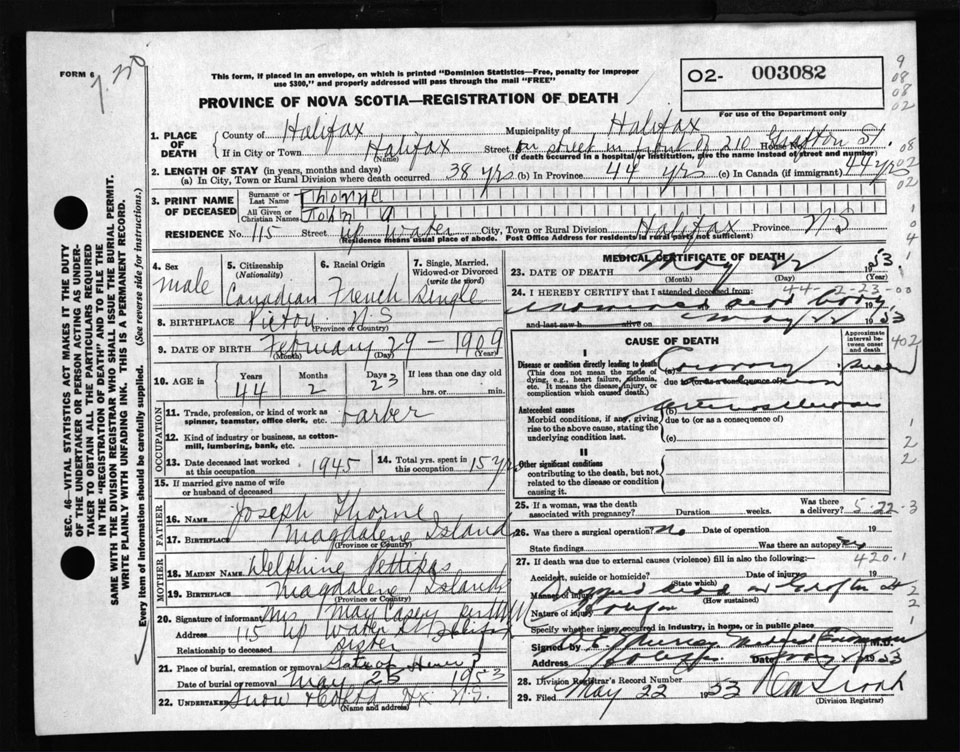 FORM 6
This form, if placed in an envelope, on which is printed "Dominion Statistics—Free, penalty for improper
use $300," and properly addressed will pass through the mail "FREE"
O2- 003082
PROVINCE OF NOVA SCOTIA—REGISTRATION OF DEATH
For use of the Department only
9
08
08
02
1. PLACE OF DEATH
County of Halifax Municipality of Halifax
If in City or Town Halifax Street on street in front of 210 House No. Grafton St.
(Name) (If death occurred in a hospital or institution, give the name instead of street and number)
08
02
02
2. LENGTH OF STAY (in years, months and days)
(a) In City, Town or Rural Division where death occurred 38 yrs (b) In Province 44 yrs (c) In Canada (if immigrant) 44 yrs
3. PRINT NAME OF DECEASED
Surname or Last Name Thorne
All Given or Christian Names John A
RESIDENCE No. 115 Street Up Water City, Town or Rural Division Halifax Province N.S
(Residence means usual place of abode. Post Office Address for residents in rural parts not sufficient)
4. Sex Male
5. Citizenship (Nationality) Canadian
6. Racial Origin French
7. Single, Married, Widowed or Divorced (write the word) Single
8. BIRTHPLACE Pictou N.S
(Province or Country)
9. DATE OF BIRTH February 29 - 1909
(Month) (Day) (Year)
10. AGE in Years 44 Months 2 Days 23 If less than one day old hrs. or min.
OCCUPATION
11. Trade, profession, or kind of work as spinner, teamster, office clerk, etc. Barber
12. Kind of industry or business, as cotton-mill, lumbering, bank, etc.
13. Date deceased last worked at this occupation 1945
14. Total yrs. spent in this occupation 15 yrs
15. If married give name of wife or husband of deceased
FATHER
16. NAME Joseph Thorne
17. BIRTHPLACE Magdalene Island
(Province or Country)
MOTHER
18. MAIDEN NAME Delphine Pettipas
19. BIRTHPLACE Magdalene Islands
(Province or Country)
20. Signature of informant Mrs Mae Casey
Address 115 Up Water St Halifax
Relationship to deceased Sister
21. Place of burial, cremation or removal Gate of Heaven
Date of burial or removal May 25 1953
22. UNDERTAKER Snow & Co Ltd Hx N.S.
(Name and address)
MEDICAL CERTIFICATE OF DEATH
23. DATE OF DEATH May 22 1953
(Month) (Day) (Year)
44-2-23-00
24. I HEREBY CERTIFY that I attended deceased from:
dead body 19
and last saw h alive on May 22 1953
CAUSE OF DEATH
Approximate interval between onset and death
402
I
Disease or condition directly leading to death
(This does not mean the mode of dying, e.g., heart failure, asthenia, etc. It means the disease, injury, or complication which caused death.)
(a) Coronary
due to (or as a consequence of)
Antecedent causes
Morbid conditions, if any, giving rise to the above cause, stating the underlying condition last.
(b)
due to (or as a consequence of)
(c)
II
Other significant conditions
contributing to the death, but not related to the disease or condition causing it.
25. If a woman, was the death associated with pregnancy? Duration weeks. Was there a delivery?
5-22-3
26. Was there a surgical operation? no Date of operation 19
State findings Was there an autopsy?
27. If death was due to external causes (violence) fill in also the following:—
420.1
Accident, suicide or homicide? Date 19
(State which)
Manner of injury
(How sustained)
Nature of injury
Specify whether injury occurred in industry, in home, or in public place
Signed by Murray Medical Examiner M.D.
Address Halifax Date May 22 1953
28. Division Registrar's Record Number
29. Filed May 22 1953
(Division Registrar)
SEC. 46—VITAL STATISTICS ACT MAKES IT THE DUTY
OF THE UNDERTAKER OR PERSON ACTING AS UNDER-
TAKER TO OBTAIN ALL THE PARTICULARS REQUIRED
IN THE "REGISTRATION OF DEATH" AND TO FILE THE
SAME WITH THE DIVISION REGISTRAR WHO SHALL ISSUE THE BURIAL PERMIT.
WRITE PLAINLY WITH UNFADING INK. THIS IS A PERMANENT RECORD.
Every item of information should be carefully supplied. (See reverse side for instructions.)